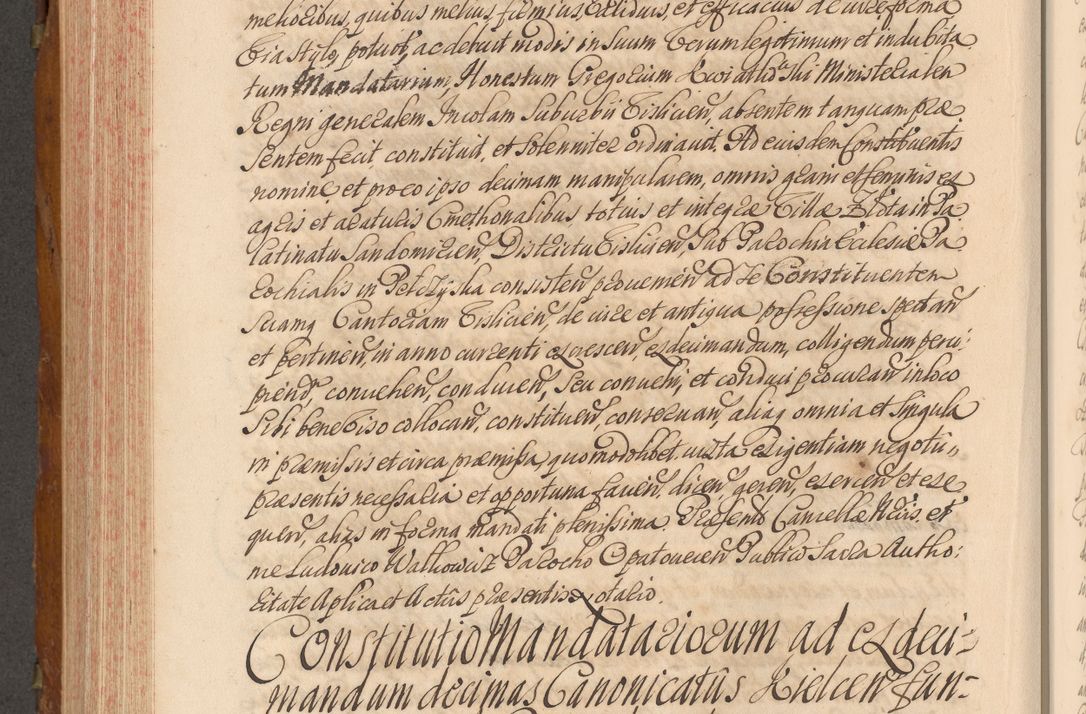 melioribus, quibus melius, firmius, validius, et efficacius de iure forma
via stylo, potuit, ac debuit modis in suum verum legitimum et indubita
tum Mandatarium, Honestum Gregorium Kwiatkowski Ministerialem
Regni generalem Incolam suburbii Vislicieñ, absentem tanquam præ
sentem fecit constituit, et solenniter ordinavit. Ad eiusdem Constituentis
nomine, et pro eo ipso decimam manipularem, omnis grani et seminis ex
agris et araturis Cmethonalibus totius et integræ Villæ Złota in Pa
latinatu Sandomirieñ, Districtu Vislicieñ, sub Parochia Ecclesiæ Pa
rochialis in Petczyska consisteñ provenieñ ad se Constituentem
suamq Cantoriam Visliciеñ, de iure et antiqua possessione spectañ
et pertineñ, in anno currenti excresceñ, exdecimandum, colligendum perci:
piend, conveheñ, conduceñ, seu convehi, et conduci procurañ in loco
sibi bene viso collocañ, constitueñ, conservañ, aliaq omnia et singula
in præmissis et circa præmissa, quomodolibet iuxta exigentiam negotii,,
præsentis necessaria et opportuna facieñ, diceñ, gereñ, exerceñ et exe
queñ, alias in forma mandati plenissima. Præsente Cancellæ Nrius. et
me Ludovico Walkowicz Parocho Opatovieceñ Publico Sacra Autho:
ritate Aplica et Actûs præsentis Notario.
Constitutio Mandatariorum ad exdeci-
mandum decimas Canonicatûs Kielceñ fun-